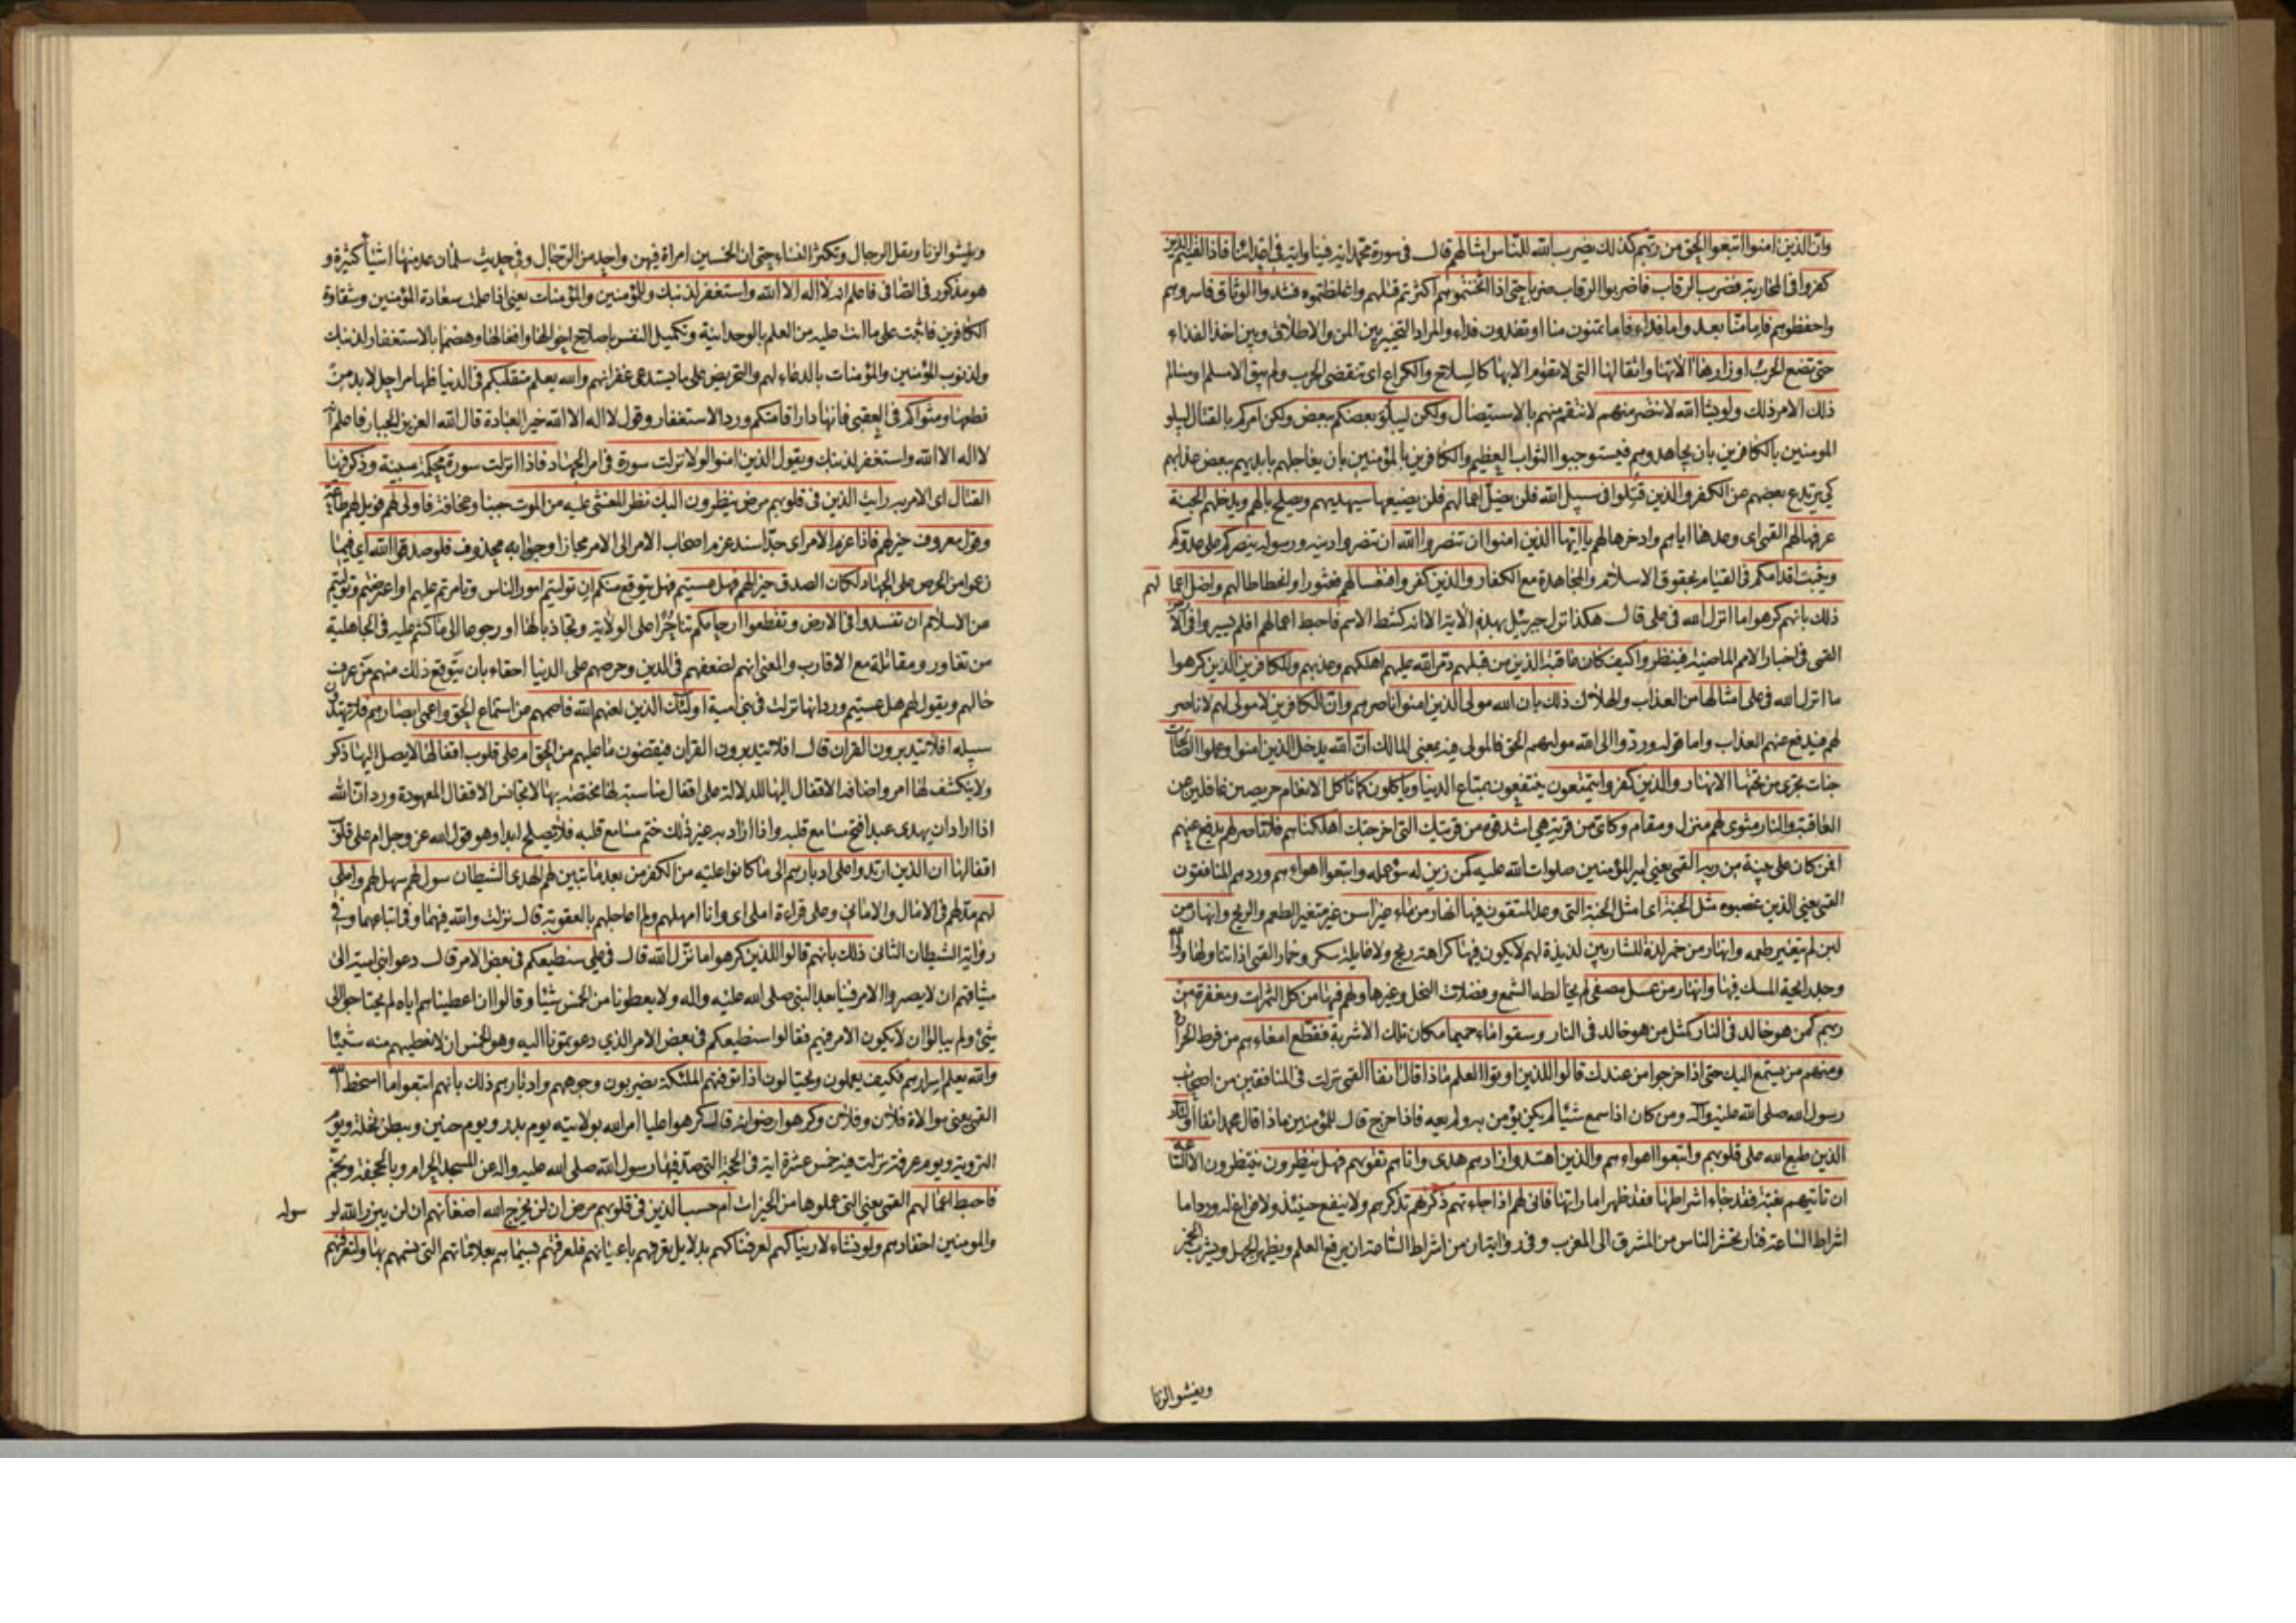 وان الذين امنوا اتبعوا الحق من ربهم كذلك يضرب الله للناس امثالهم قال في سورة محمد اية فينا واية في اعدائنا فاذا لقيتم الذين
كفروا في المحاربة فضرب الرقاب فاضربوا الرقاب ضربا حتى اذا اثخنتموهم اكثرتم قتلهم واغلظتموه فشدوا الوثاق فاسروهم
واحفظوهم فاما منا بعد واما فداء فاما تمنون منا او تفدون فداء والمراد التخيير بين المن والاطلاق وبين اخذ الفداء
حتى تضع الحرب اوزارها الاتها واثقالها التي لا تقوم الا بها كالسلاح والكراع اي تنقضي الحرب ولم يبق الا مسلم او مسالم
ذلك الامر ذلك ولو يشاء الله لانتصر منهم لانتقم منهم بالاستيصال ولكن ليبلو بعضكم ببعض ولكن امركم بالقتال ليبلو
المومنين بالكافرين بان يجاهدوهم فيستوجبوا الثواب العظيم والكافرين بالمؤمنين بان يعاجلهم بايديهم ببعض عذابهم
كي يرتدع بعضهم عن الكفر والذين قتلوا في سبيل الله فلن يضل اعمالهم فلن يضيعها سيهديهم ويصلح بالهم ويدخلهم الجنة
عرفها لهم القمى اي وعدها اياهم وادخرها لهم يا ايها الذين امنوا ان تنصروا الله ان تنصروا دينه ورسوله ينصركم على عدوكم
ويثبت اقدامكم في القيام بحقوق الاسلام والمجاهدة مع الكفار والذين كفروا فتعسا لهم فعثورا وانحطاطا لهم واضل اعما لهم
ذلك بانهم كرهوا ما انزل الله في علي قال هكذا نزل جبرئيل بهذه الاية الا انه كشط الاسم فاحبط اعمالهم افلم يسيروا في الار
القمى في اخبار الامم الماضية فينظروا كيف كان عاقبة الذين من قبلهم دمر الله عليهم اهلكهم وعذبهم وللكافرين الذين كرهوا
ما انزل الله في علي امثالها من العذاب والهلاك ذلك بان الله مولى الذين امنوا ناصرهم وان الكافرين لا مولى لهم لا ناصر
لهم فيدفع عنهم العذاب واما قوله وردوا الى الله موليهم الحق فالمولى فيه بمعنى المالك ان الله يدخل الذين امنوا وعملوا الصالحات
جنات تجري من تحتها الانهار والذين كفروا يتمتعون ينتفعون بمتاع الدنيا وياكلون كما تاكل الانعام حريصين غافلين عن
العاقبة والنار مثوى لهم منزل ومقام وكاين من قرية هي اشد قوة من قريتك التي اخرجتك اهلكناهم فلا ناصر لهم يدفع عنهم
افمن كان على بينة من ربه القمى يعني امير المؤمنين صلوات الله عليه كمن زين له سوء عمله واتبعوا اهواءهم ورد هم المنافقون
القمى يعني الذين غصبوه مثل الجنة اي امثل الجنة التي وعد المتقون فيها انهار من ماء غير اسن غير متغير الطعم والريح وانهار من
لبن لم يتغير طعمه وانهار من خمر لذة للشاربين لذيذة لهم لا يكون فيها كراهة ريح ولا غايلة سكر وخمار القمى اذا تناولها ولي الله
وجد رايحة المسك فيها وانهار من عسل مصفى لم يخالطه الشمع وفضلات النحل وغيرها ولهم فيها من كل الثمرات ومغفرة من
ربهم كمن هو خالد في النار كمثل من هو خالد في النار وسقوا ماء حميما مكان تلك الاشربة فقطع امعاءهم من فرط الحرارة
ومنهم من يستمع اليك حتى اذا خرجوا من عندك قالوا للذين اوتوا العلم ماذا قال انفا القمى نزلت في المنافقين من اصحاب
رسول الله صلى الله عليه واله ومن كان اذا سمع شيئا لم يكن يؤمن به ولم يعه فاذا خرج قال للمؤمنين ماذا قال محمد انفا اولئك
الذين طبع الله على قلوبهم واتبعوا اهواءهم والذين اهتدوا زادهم هدى واتاهم تقويهم فهل ينظرون ينتظرون الا الساعة
ان تاتيهم بغتة فقد جاء اشراطها فقد ظهر اماراتها فانى لهم اذا جاءتهم ذكريهم تذكرهم ولا ينفع حينئذ ولا فراغ له ورد اما
اشراط الساعة فنار تحشر الناس من المشرق الى المغرب وفي رواية ان من اشراط الساعة ان يرفع العلم ويظهر الجهل ويشرب الخمر
ويفشو الزنا
ويفشو الزنا ويقل الرجال وتكثر النساء حتى ان الخمسين امراة فيهن واحد من الرجال وفي حديث سلمان عد منها اشياء كثيرة و
هو مذكور في الصافى فاعلم انه لا اله الا الله واستغفر لذنبك وللمؤمنين والمؤمنات يعني اذا علمت سعادة المؤمنين وشقاوة
الكافرين فاثبت على ما انت عليه من العلم بالوحدانية وتكميل النفس باصلاح احوالها وافعالها وهضمها بالاستغفار لذنبك
ولذنوب المؤمنين والمؤمنات بالدعاء لهم والتحريض على ما يستدعي غفرانهم والله يعلم متقلبكم في الدنيا فانها مراحل لا بد من
قطعها ومثواكم في العقبى فانها دار اقامتكم ورد الاستغفار وقول لا اله الا الله خير العبادة قال الله العزيز الجبار فاعلم انه
لا اله الا الله واستغفر لذنبك ويقول الذين امنوا لولا نزلت سورة في امر الجهاد فاذا انزلت سورة محكمة مبينة وذكر فيها
القتال اي الامر به رايت الذين في قلوبهم مرض ينظرون اليك نظر المغشى عليه من الموت جبنا ومخافة فاولى لهم فويل لهم طاعة
وقول معروف خير لهم فاذا عزم الامر اي جد اسند عزم اصحاب الامر الى الامر مجازا وجوابه محذوف فلو صدقوا الله اي فيما
زعموا من الحرص على الجهاد لكان الصدق خيرا لهم فهل عسيتم فهل يتوقع منكم ان توليتم امور الناس وتامرتم عليهم او اعرضتم وتوليتم
عن الاسلام ان تفسدوا في الارض وتقطعوا ارحامكم تناحرا على الولاية وتجاذبا لها او رجوعا الى ما كنتم عليه في الجاهلية
من تغاور ومقاتلة مع الاقارب والمعنى انهم لضعفهم في الدين وحرصهم على الدنيا احقاء بان يتوقع ذلك منهم من عرف
حالهم ويقول لهم هل عسيتم ورد انها نزلت في بني امية اولئك الذين لعنهم الله فاصمهم عن استماع الحق واعمى ابصارهم فلا يهتدون
سبيله افلا يتدبرون القران قال افلا يتدبرون القران فيقضون ما عليهم من الحق ام على قلوب اقفالها لا يصل اليها ذكر
ولا ينكشف لها امر واضافة الاقفال اليها للدلالة على اقفال مناسبة لها مختصة بها لا تجانس الاقفال المعهودة ورد ان الله
اذا اراد ان يهدي عبدا فتح مسامع قلبه واذا اراد به غير ذلك ختم مسامع قلبه فلا يصلح ابدا وهو قول الله عز وجل ام على قلوب
اقفالها ان الذين ارتدوا على ادبارهم الى ما كانوا عليه من الكفر من بعد ما تبين لهم الهدى الشيطان سول لهم سهل لهم واملى
لهم مد لهم في الامال والاماني وعلى قراءة املي اي وانا امهلهم ولم اعاجلهم بالعقوبة قال نزلت والله فيهما وفي اتباعهما وفي
رواية الشيطان الثاني ذلك بانهم قالوا للذين كرهوا ما نزل الله قال في علي سنطيعكم في بعض الامر قال دعوا بني امية الى
ميثاقهم ان لا يصيروا الامر فينا بعد النبي صلى الله عليه واله ولا يعطونا من الخمس شيئا وقالوا ان اعطيناهم اياه لم يحتاجوا الى
شيء ولم يبالوا ان لا يكون الامر فيهم فقالوا سنطيعكم في بعض الامر الذي دعوتمونا اليه وهو الخمس ان لا نعطيهم منه شيئا
والله يعلم اسرارهم فكيف يعملون ويحتالون اذا توفتهم الملئكة يضربون وجوههم وادبارهم ذلك بانهم اتبعوا ما اسخط الله
القمى يعني موالاة فلان وفلان وكرهوا رضوانه قال كرهوا عليا امر الله بولايته يوم بدر ويوم حنين وببطن نخلة ويوم
التروية ويوم عرفة نزلت فيه خمس عشرة اية في الحجة التي صد فيها رسول الله صلى الله عليه واله عن المسجد الحرام وبالجحفة وبخم
فاحبط اعمالهم القمى يعني التي عملوها من الخيرات ام حسب الذين في قلوبهم مرض ان لن يخرج الله اضغانهم ان لن يبرز الله لرسوله
والمومنين احقادهم ولو نشاء لاريناكهم لعرفناكهم بدلايل تعرفهم باعيانهم فلعرفتهم بسيماهم بعلاماتهم التي نسمهم بها ولتعرفنهم